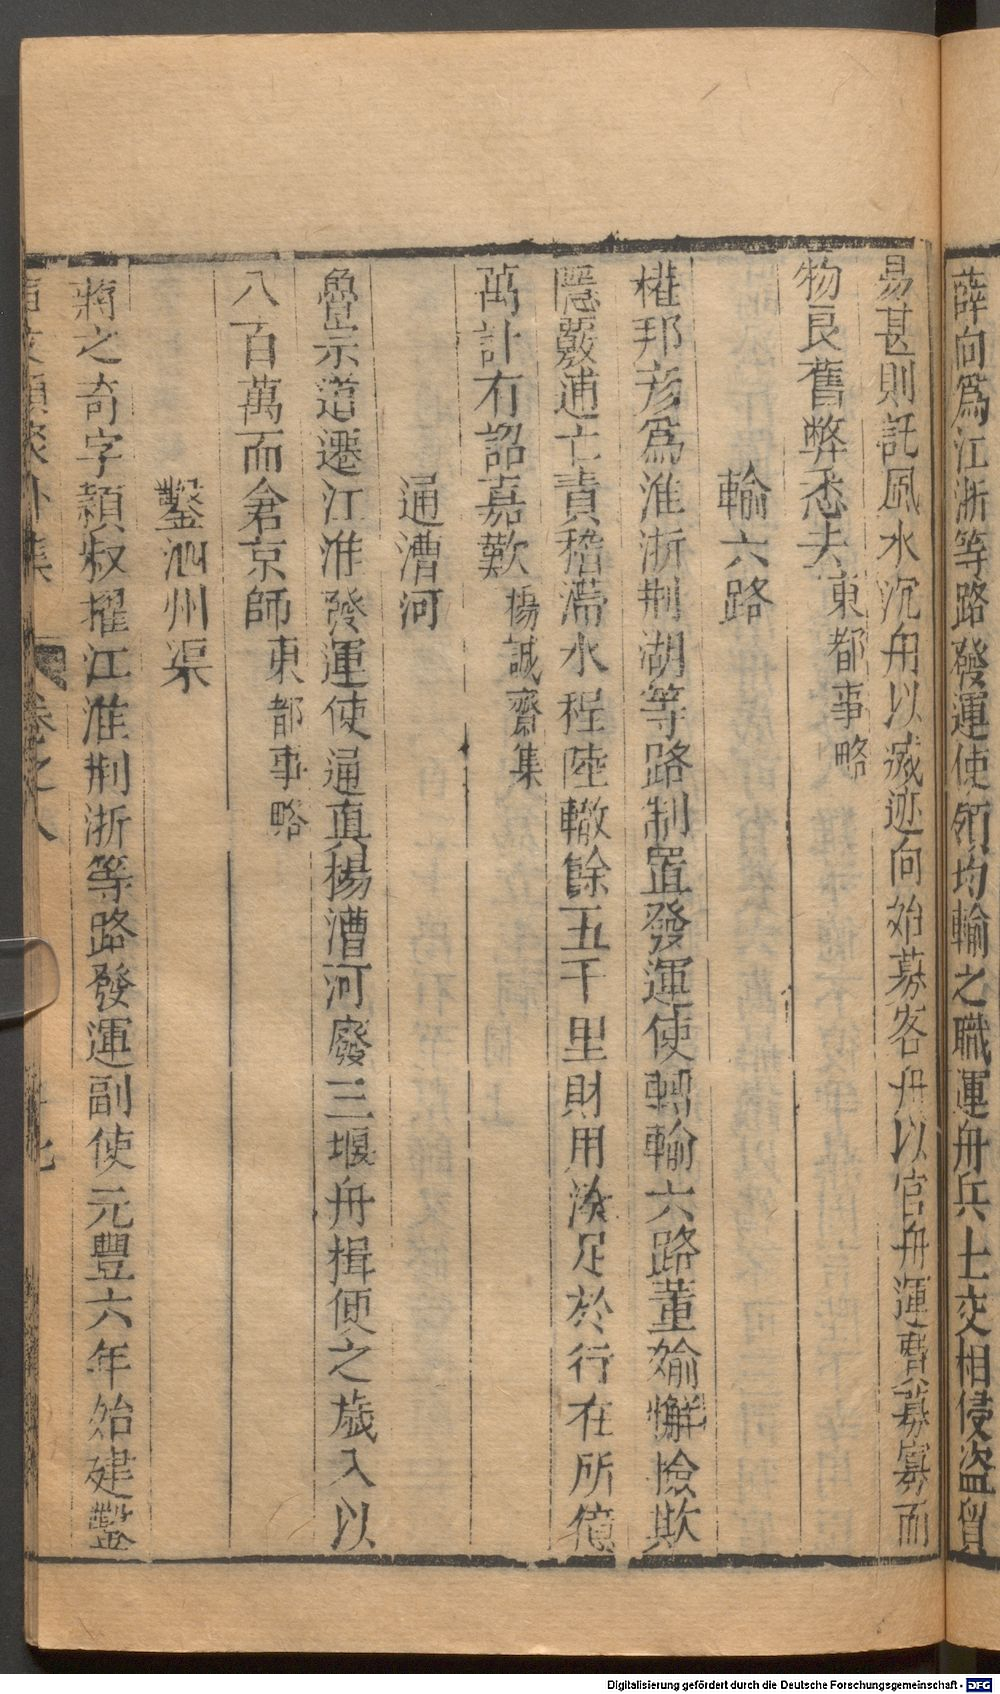 薛向爲江浙等路發運使領均輸之職運舟兵士交相侵盜貿
易甚則託風水沉舟以滅迹向始募客舟以官舟運曹募寡而
物良舊弊悉去東都事略
輸六路
權邦彥爲淮浙荆湖等路制置發運使轉輸六路董媮懈撿欺
隱覈逋亡責稽滯水程陸轍餘五千里財用沛足於行在所億
萬計有詔嘉歎楊誠齋集
通漕河
魯宗道遷江淮發運使通真楊漕河廢三堰舟揖便之歲入以
八百萬而倉京師東都事略
鑿泗州渠
蔣之奇字穎叔擢江淮荆浙等路發運副使元豐六年始建鑿
外集 卷之八
Digitalisierung gefördert durch die Deutsche Forschungsgemeinschaft - DFG